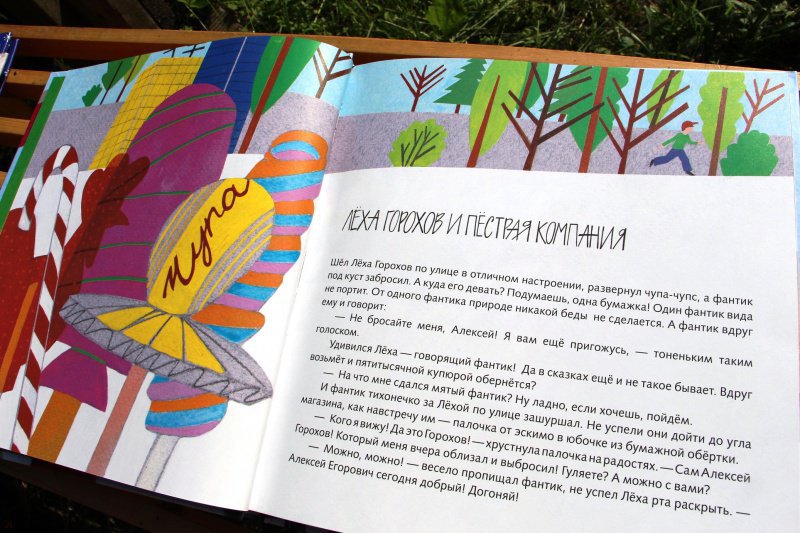 чупа
ЛЁХА ГОРОХОВ И ПЁСТРАЯ КОМПАНИЯ
Шёл Лёха Горохов по улице в отличном настроении, развернул чупа-чупс, а фантик
под куст забросил. А куда его девать? Подумаешь, одна бумажка! Один фантик вида
не портит. От одного фантика природе никакой беды не сделается. А фантик вдруг
ему и говорит:
— Не бросайте меня, Алексей! Я вам ещё пригожусь, — тоненьким таким
голоском.
Удивился Лёха — говорящий фантик! Да в сказках ещё и не такое бывает. Вдруг
возьмёт и пятитысячной купюрой обернётся?
— На что мне сдался мятый фантик? Ну ладно, если хочешь, пойдём.
И фантик тихонечко за Лёхой по улице зашуршал. Не успели они дойти до угла
магазина, как навстречу им — палочка от эскимо в юбочке из бумажной обёртки.
— Кого я вижу! Да это Горохов! — хрустнула палочка на радостях. — Сам Алексей
Горохов! Который меня вчера облизал и выбросил! Гуляете? А можно с вами?
— Можно, можно! — весело пропищал фантик, не успел Лёха рта раскрыть. —
Алексей Егорович сегодня добрый! Догоняй!